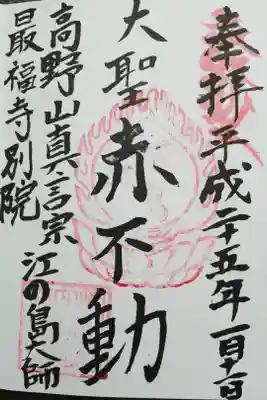 奉拝 平成二十五年一月十一日
大聖赤不動
高野山真言宗 江の島大師
最福寺別院